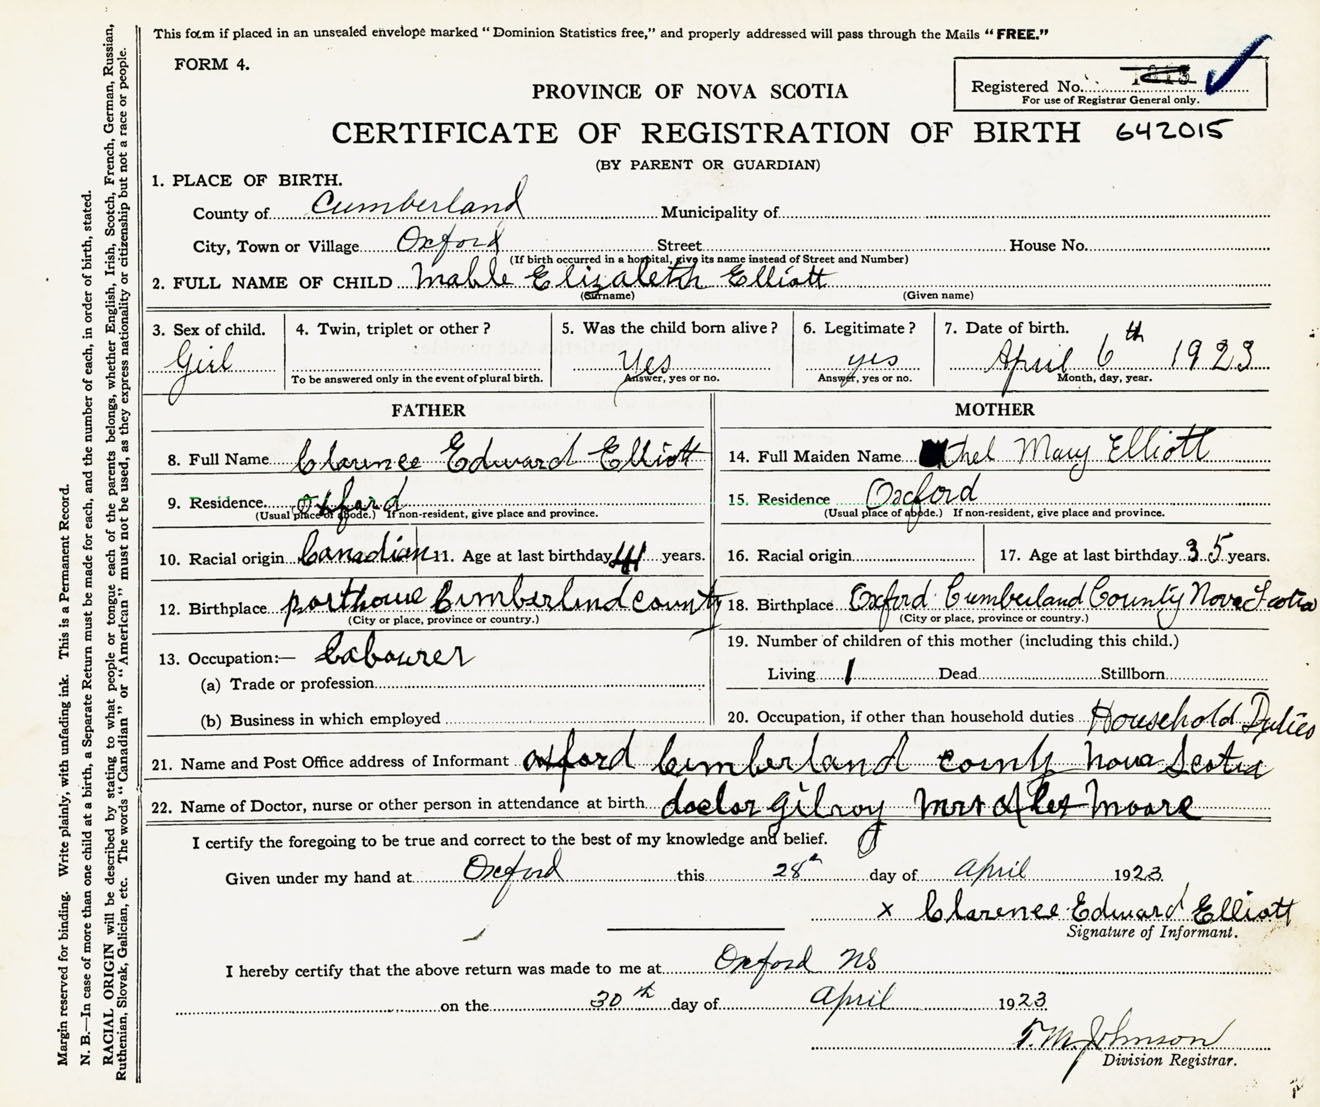 This form if placed in an unsealed envelope marked "Dominion Statistics free," and properly addressed will pass through the Mails "FREE."
FORM 4.
Registered No.
For use of Registrar General only.
PROVINCE OF NOVA SCOTIA
CERTIFICATE OF REGISTRATION OF BIRTH 642015
(BY PARENT OR GUARDIAN)
1. PLACE OF BIRTH.
County of Cumberland Municipality of
City, Town or Village Oxford Street House No.
(If birth occurred in a hospital, give its name instead of Street and Number)
2. FULL NAME OF CHILD Mable Elizabeth Elliott
(Surname) (Given name)
3. Sex of child. 4. Twin, triplet or other? 5. Was the child born alive? 6. Legitimate? 7. Date of birth.
Girl Yes yes April 6th 1923
To be answered only in the event of plural birth. Answer, yes or no. Answer, yes or no. Month, day, year.
FATHER MOTHER
8. Full Name Clarence Edward Elliott 14. Full Maiden Name Ethel Mary Elliott
9. Residence Oxford 15. Residence Oxford
(Usual place of abode.) If non-resident, give place and province. (Usual place of abode.) If non-resident, give place and province.
10. Racial origin Canadian 11. Age at last birthday 41 years. 16. Racial origin 17. Age at last birthday 35 years.
12. Birthplace porthowe Cumberlind county 18. Birthplace Oxford Cumberland County Nova Scotia
(City or place, province or country.) (City or place, province or country.)
13. Occupation:— Labourer 19. Number of children of this mother (including this child.)
(a) Trade or profession Living 1 Dead Stillborn
(b) Business in which employed 20. Occupation, if other than household duties Household Duties
21. Name and Post Office address of Informant oxford Cumberland county Nova Scotia
22. Name of Doctor, nurse or other person in attendance at birth doctor Gilroy Mrs Moore
I certify the foregoing to be true and correct to the best of my knowledge and belief.
Given under my hand at Oxford this 28th day of April 1923
x Clarence Edward Elliott
Signature of Informant.
I hereby certify that the above return was made to me at Oxford NS
on the 30th day of April 1923
T. M. Johnson
Division Registrar.
Margin reserved for binding. Write plainly, with unfading ink. This is a Permanent Record.
N. B.—In case of more than one child at a birth, a Separate Return must be made for each, and the number of each, in order of birth, stated.
RACIAL ORIGIN will be described by stating to what people or tongue each of the parents belongs, whether English, Irish, Scotch, French, German, Russian,
Ruthenian, Slovak, Galician, etc. The words "Canadian" or "American" must not be used, as they express nationality or citizenship but not a race or people.